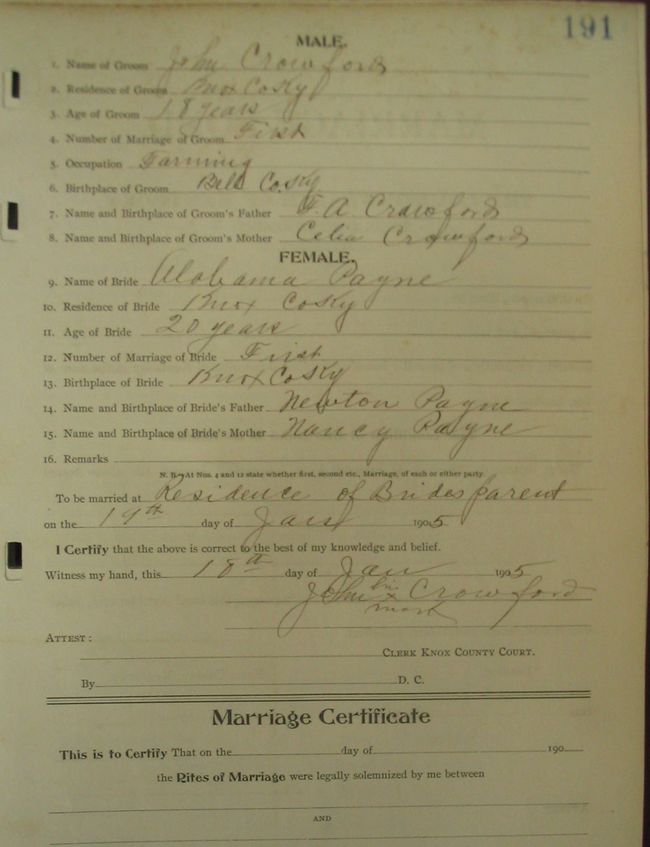 191
MALE.
1. Name of Groom John Crawford
2. Residence of Groom Knox Co Ky
3. Age of Groom 18 years
4. Number of Marriage of Groom First
5. Occupation Farming
6. Birthplace of Groom Bell Co. Ky
7. Name and Birthplace of Groom's Father F. A Crawford
8. Name and Birthplace of Groom's Mother Celia Crawford
FEMALE.
9. Name of Bride Alabama Payne
10. Residence of Bride Knox Co Ky
11. Age of Bride 20 years
12. Number of Marriage of Bride First
13. Birthplace of Bride Knox Co Ky
14. Name and Birthplace of Bride's Father Newton Payne
15. Name and Birthplace of Bride's Mother Nancy Payne
16. Remarks
N. B.—At Nos. 4 and 12 state whether first, second etc., Marriage, of each or either party.
To be married at Residence of Brides parent
on the 19th day of Jany 1905
I Certify that the above is correct to the best of my knowledge and belief.
Witness my hand, this 18th day of Jan 1905
John his x mark Crawford
ATTEST:
CLERK KNOX COUNTY COURT.
By D. C.
Marriage Certificate
This is to Certify That on the day of 190
the Rites of Marriage were legally solemnized by me between
AND